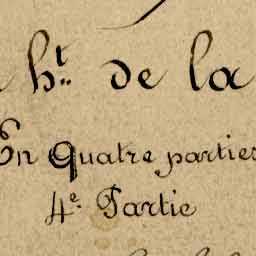 ht. de la
En Quatre parties
4e. Partie